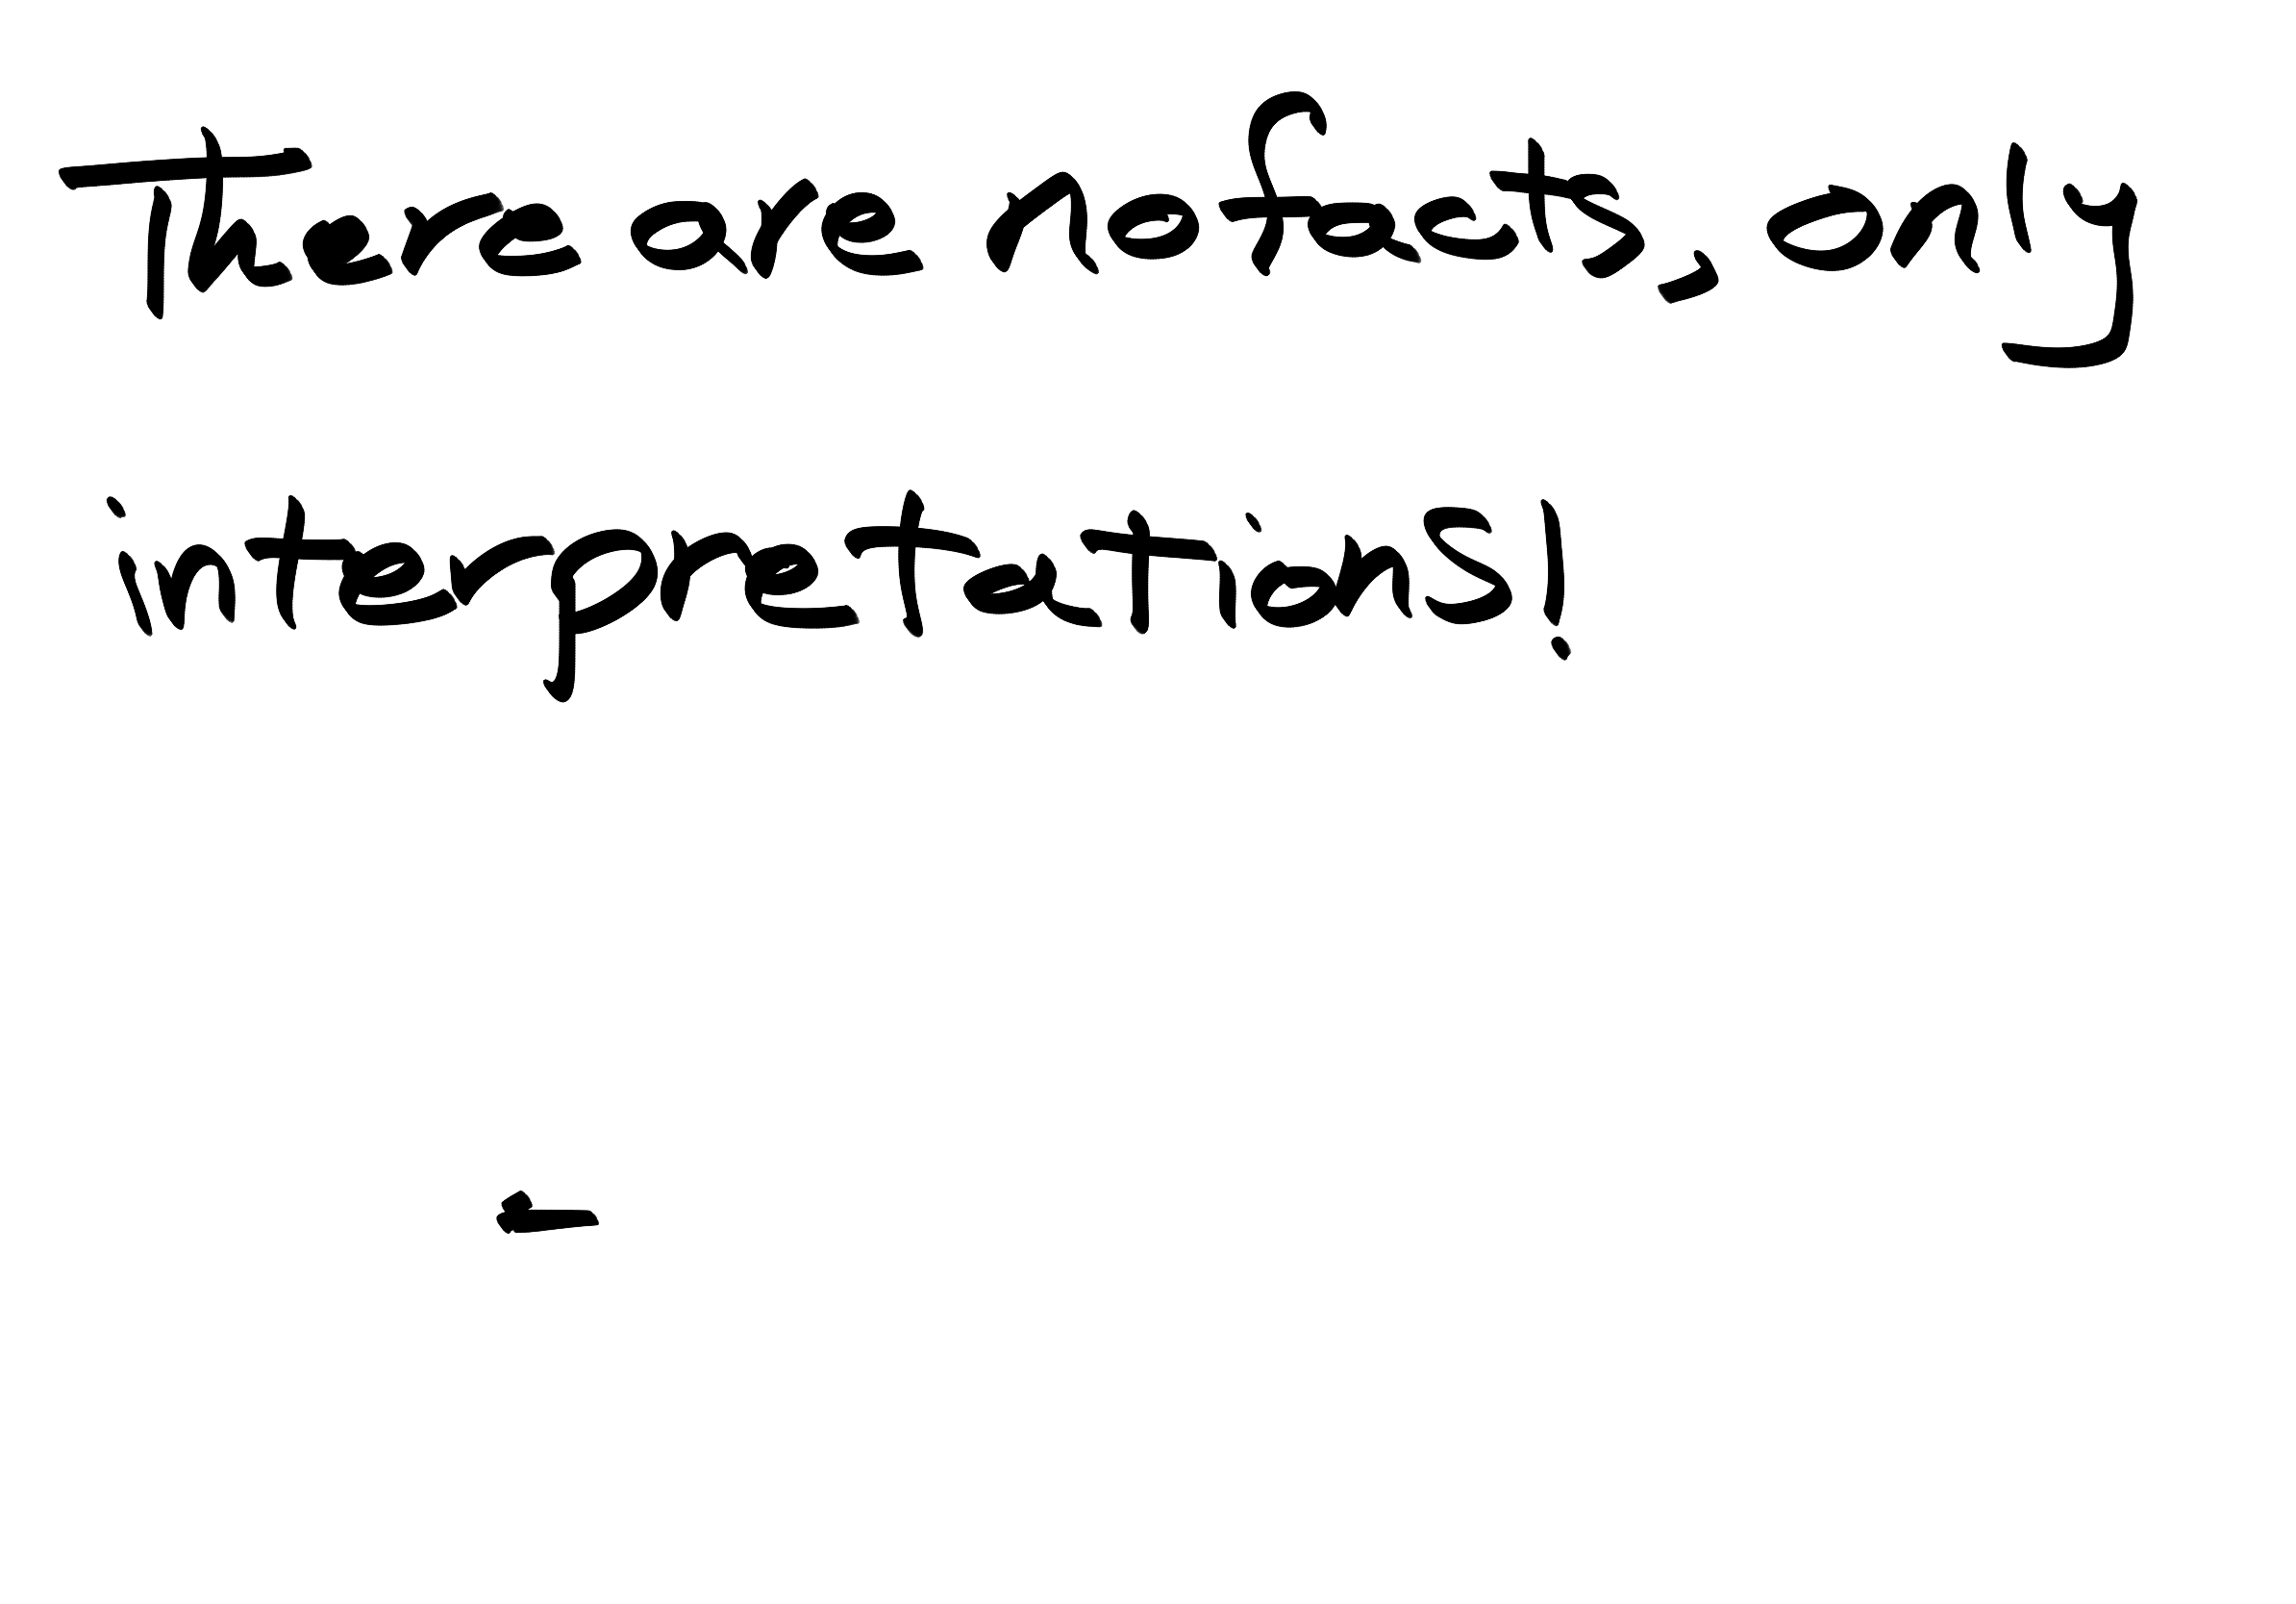 There are no facts, only
interpretations!